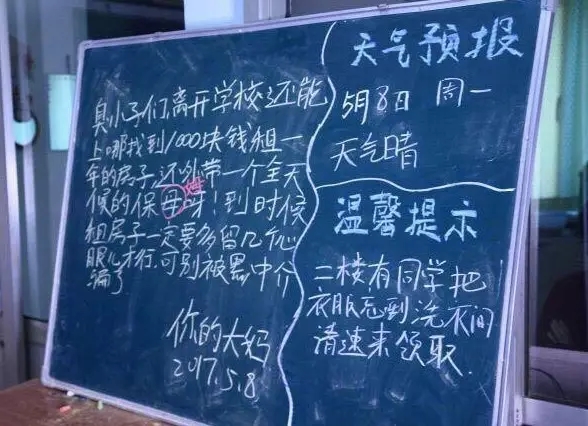 臭小子们,离开学校还能
上哪找到1000块钱租一
年的房子,还外带一个全天
姆
候的保母呀!到时候
租房子一定要多留几个心
眼儿才行,可别被黑中介
骗了
你的大妈
2017.5.8
天气预报
5月8日 周一
天气晴
温馨提示
二楼有同学把
衣服忘到洗衣间
清速来领取.